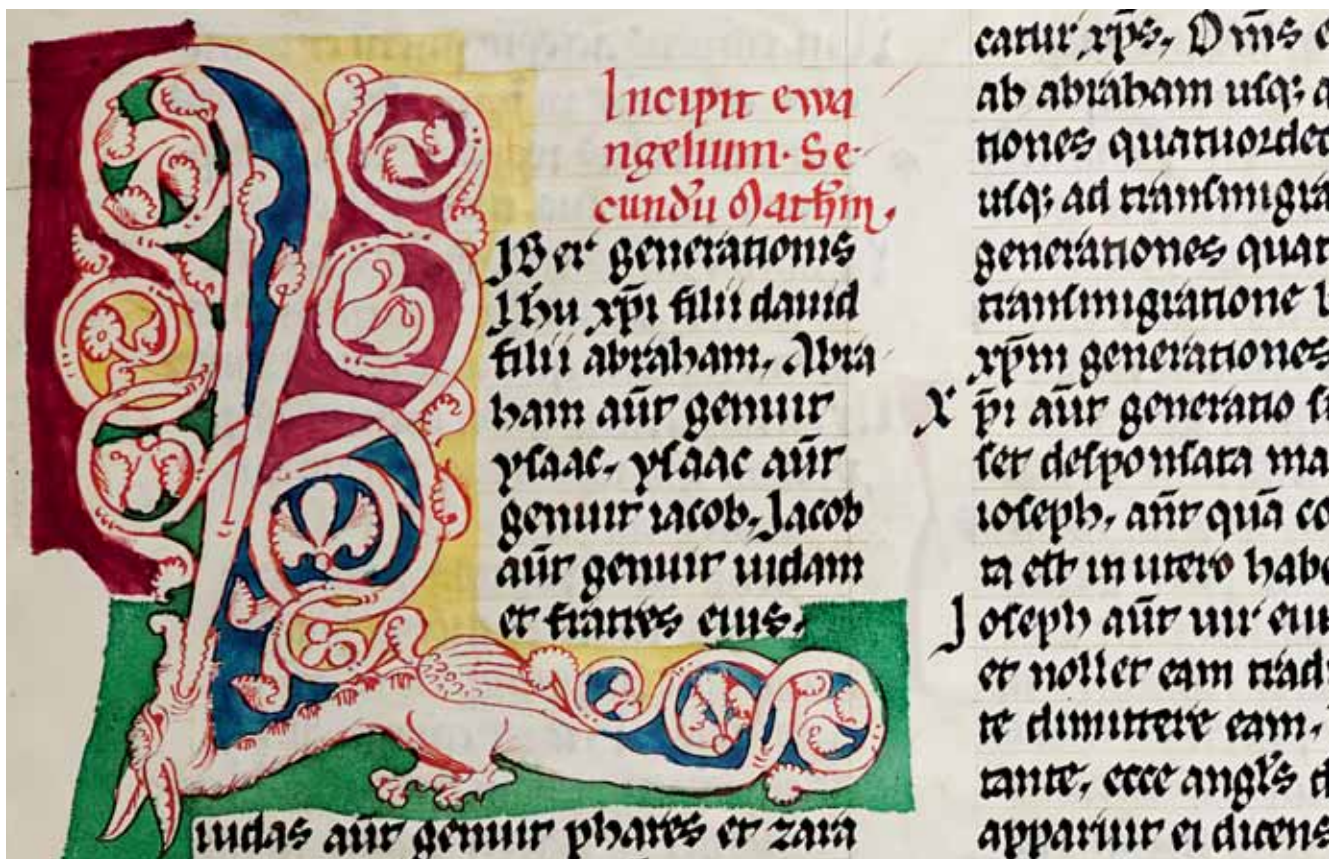 Incipit ewa
ngelium. Se
cundū Mathm̄.
IBer generationis
Ihu xp̄i filii dauid
filii abraham. Abra
ham aūt genuit
ysaac. ysaac aūt
genuit iacob. Jacob
aūt genuit iudam
et fratres eius.
iudas aūt genuit phares et zara
catur xp̄s. Om̄s
ab abraham usq;
tiones quatuordec
usq; ad transmigra
generationes quat
transmigratione
xp̄m generationes
Xp̄i aūt generatio
set desponsata ma
ioseph. ān̄t quā co
ta est in utero habe
Joseph aūt uir eiu
et nollet eam tradu
te dimittere eam.
tante. ecce angl̄s
apparuit ei dicens